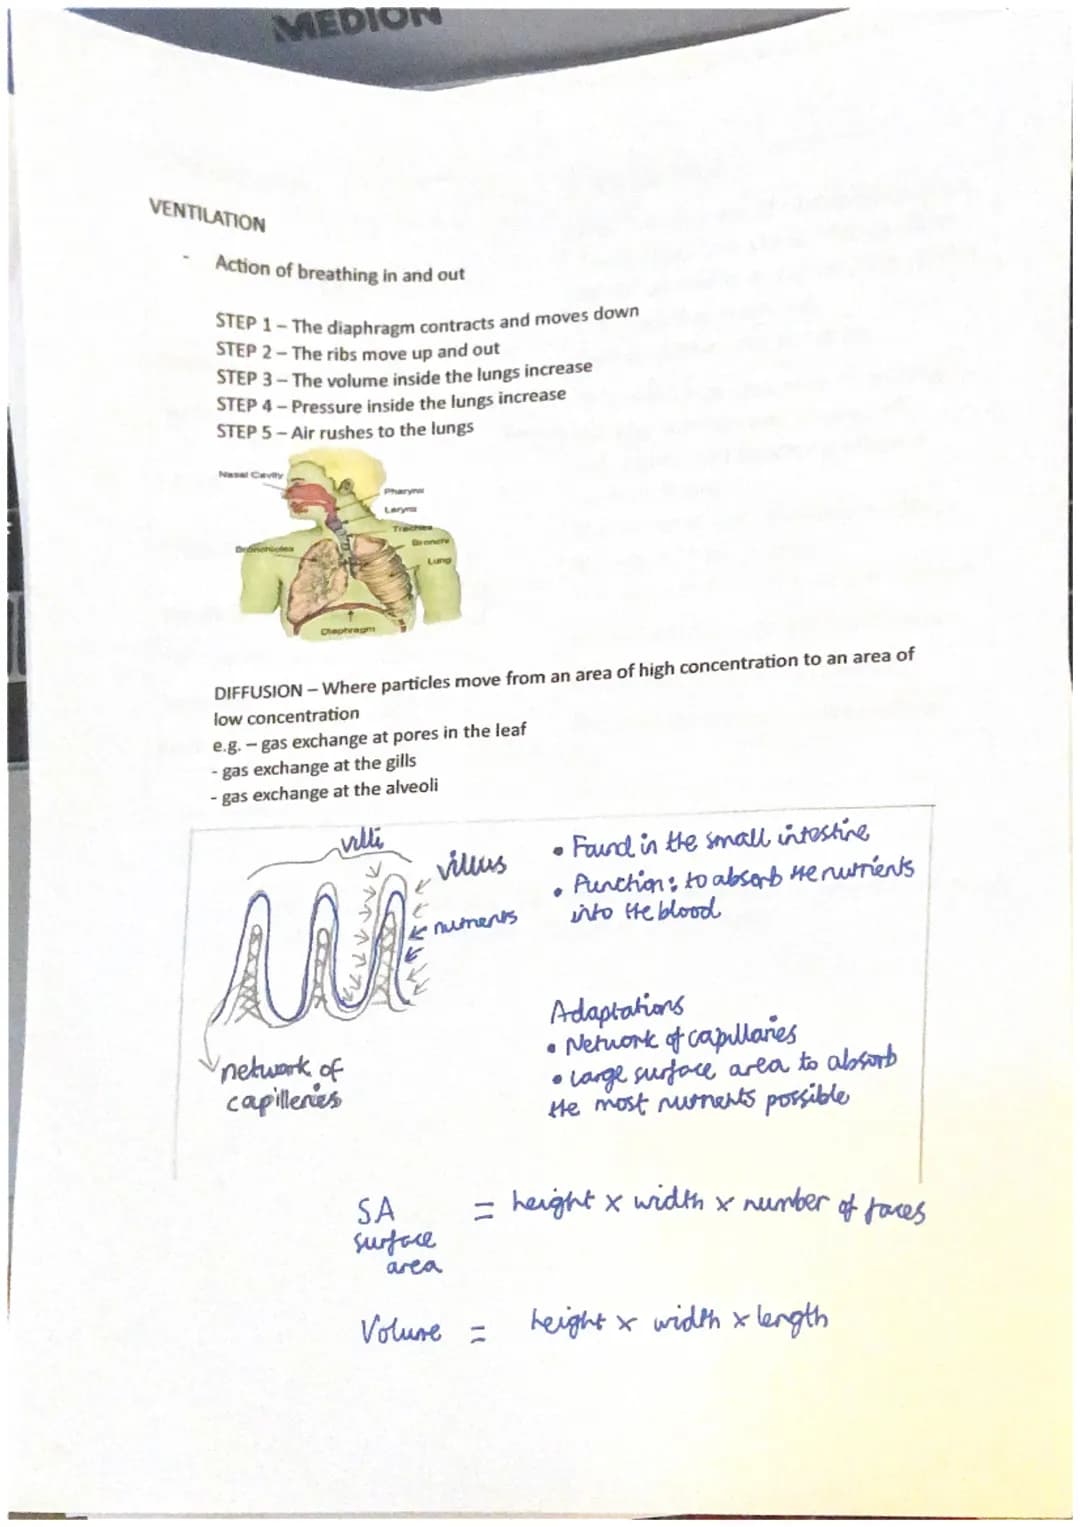 MEDION
VENTILATION
- Action of breathing in and out
STEP 1 – The diaphragm contracts and moves down
STEP 2 – The ribs move up and out
STEP 3 – The volume inside the lungs increase
STEP 4 – Pressure inside the lungs increase
STEP 5 – Air rushes to the lungs
Nasal Cavity
Pharynx
Larynx
Trachea
Bronchi
Bronchioles
Lung
Diaphragm
DIFFUSION – Where particles move from an area of high concentration to an area of
low concentration
e.g. – gas exchange at pores in the leaf
- gas exchange at the gills
- gas exchange at the alveoli
villi
villus
nutrients
network of
capilleries
• Found in the small intestine
• Function: to absorb the nutrients
into the blood
Adaptations
• Network of capillaries
• Large surface area to absorb
the most nutrients possible
SA = height x width x number of faces
surface
area
Volume = height x width x length